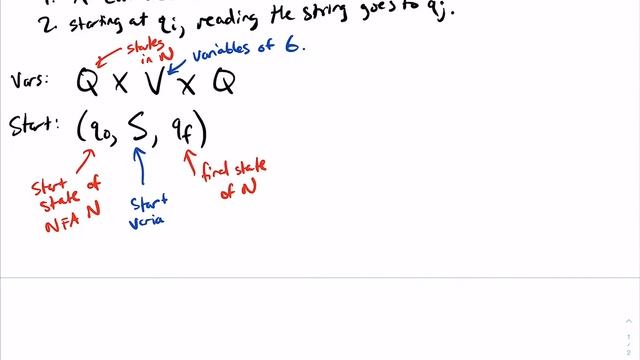 2. starting at qi, reading the string goes to qj.
states in N
variables of G.
Vars: Q x V x Q
Start: (q0, S, qf)
start state of NFA N
start varia
final state of N
1 / 2